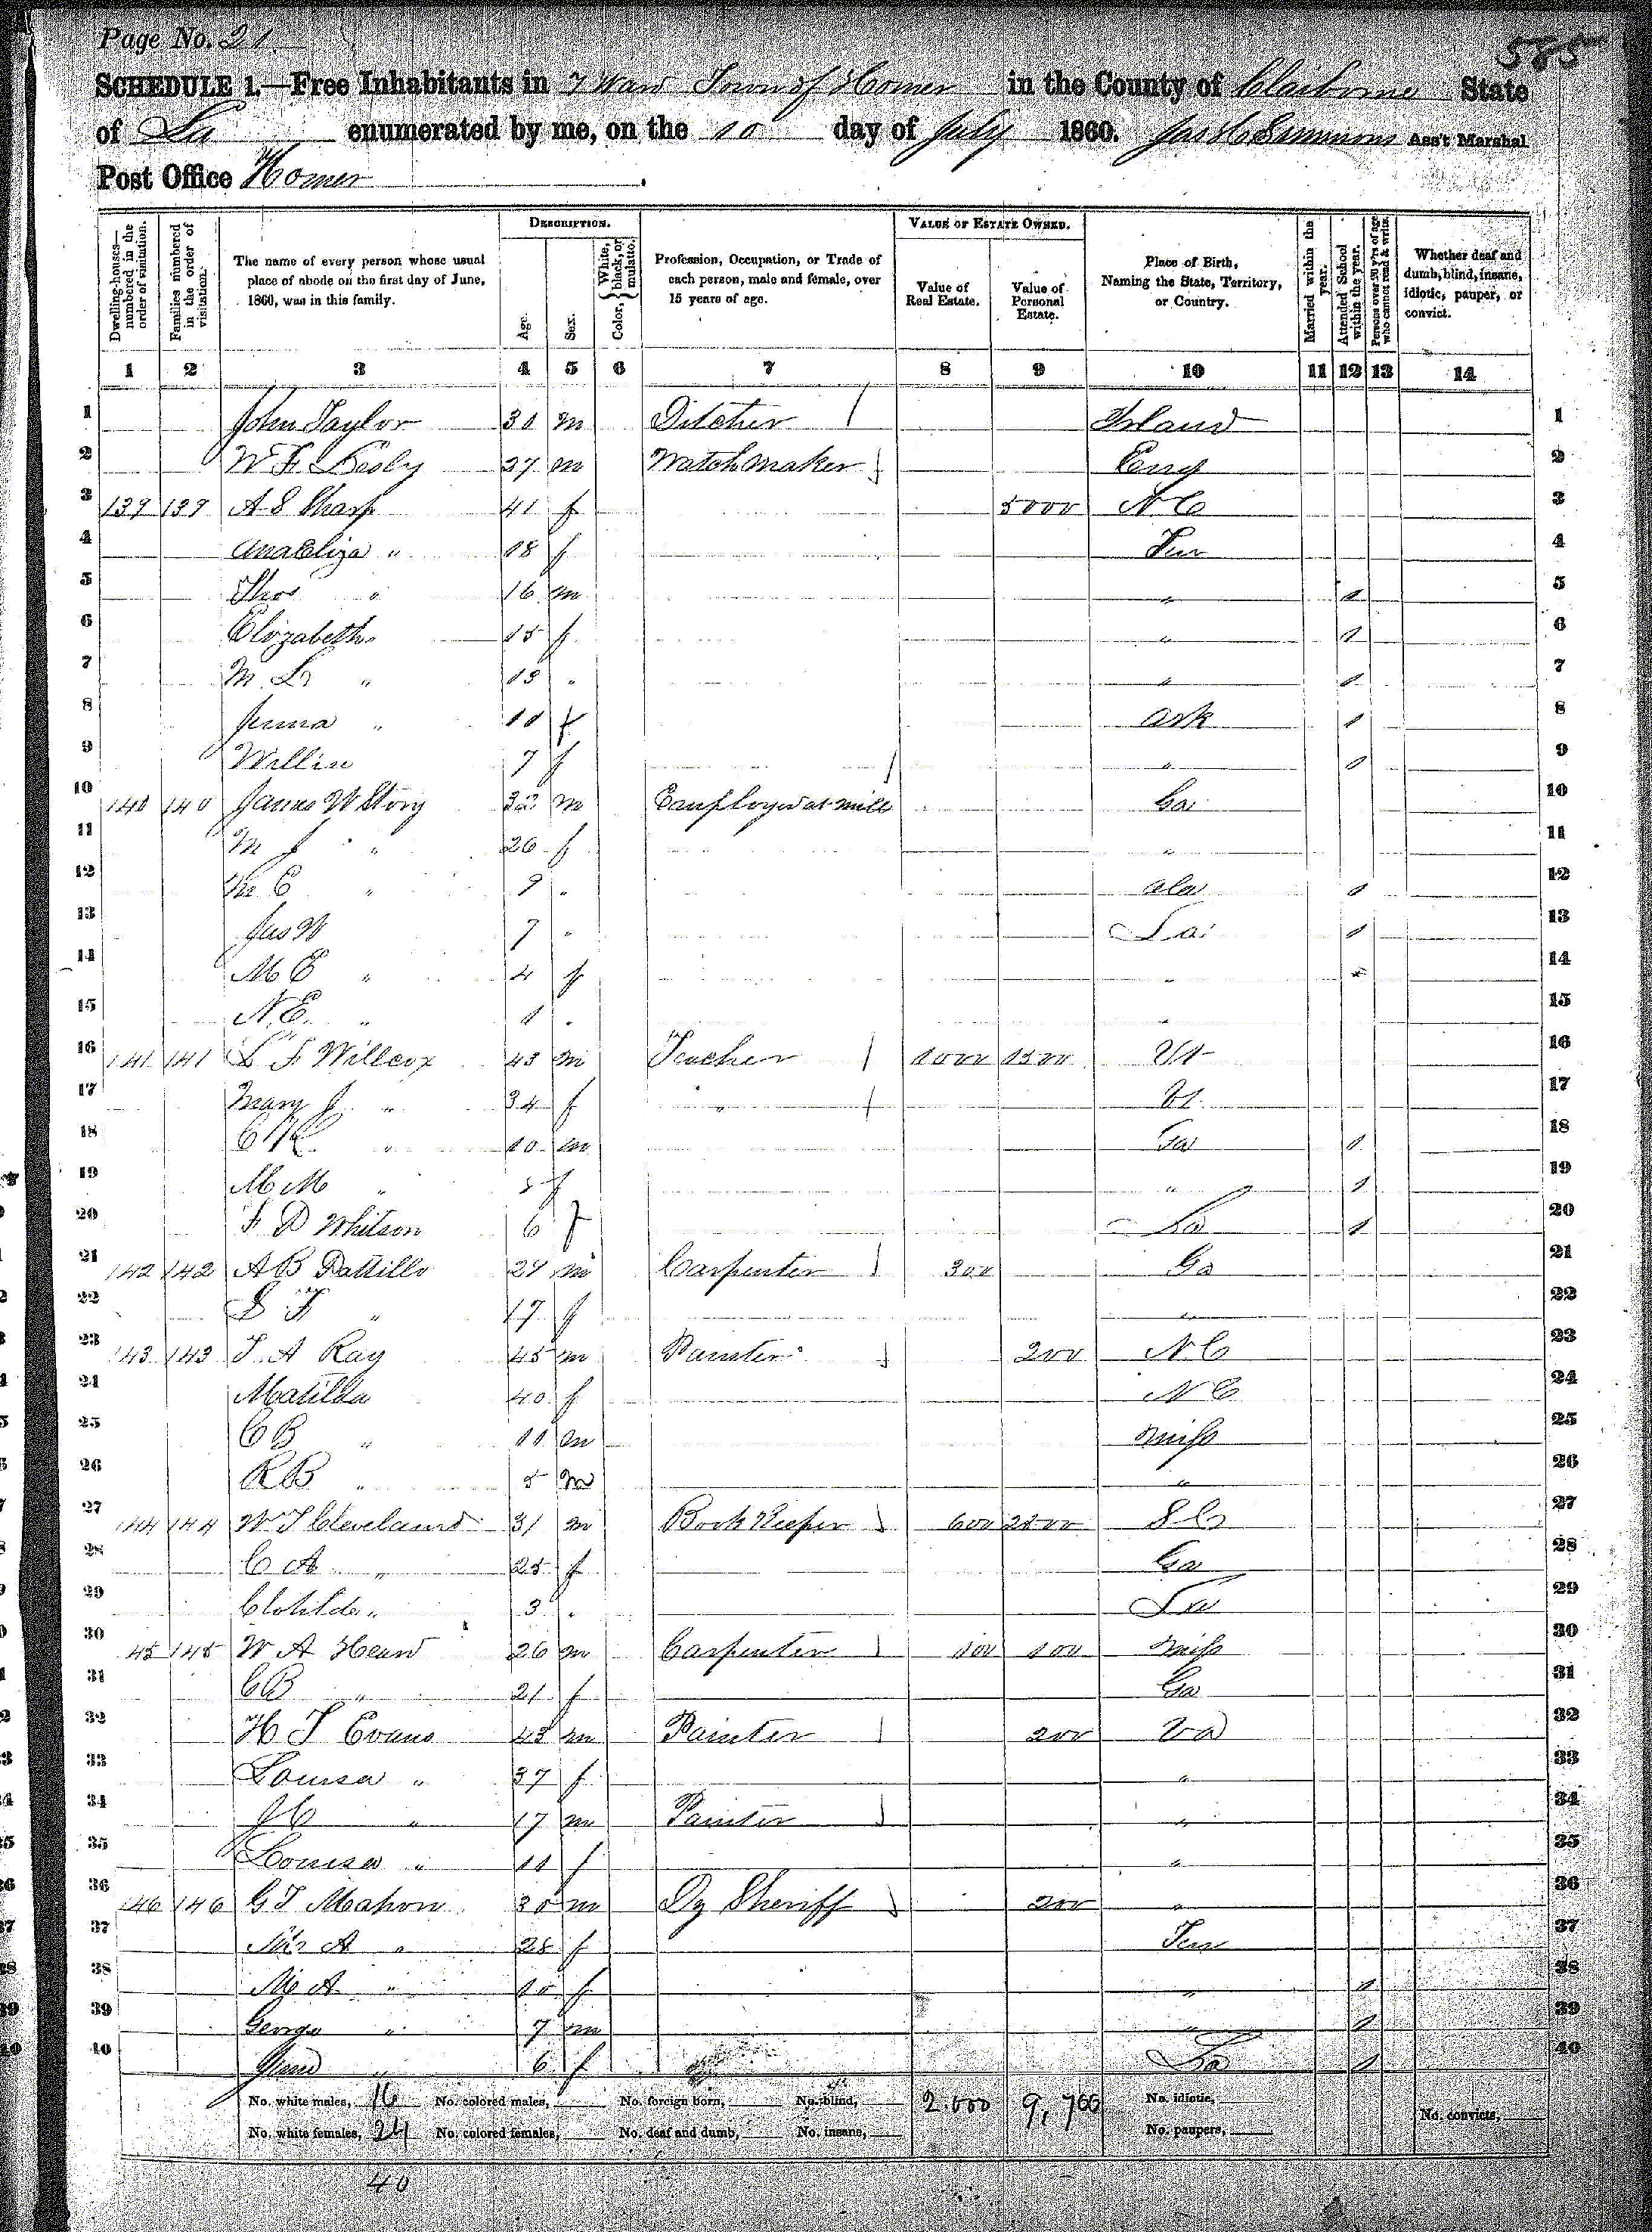 Page No. 21
585
SCHEDULE 1.—Free Inhabitants in 7 Ward Town of Homer in the County of Claiborne State
of La enumerated by me, on the 10 day of July 1860. Ass't Marshal
Post Office Homer
DESCRIPTION. VALUE OF ESTATE OWNED.
Dwelling-houses—numbered in the order of visitation. Families numbered in the order of visitation. The name of every person whose usual place of abode on the first day of June, 1860, was in this family. Age. Sex. Color, { White, black, or mulatto. Profession, Occupation, or Trade of each person, male and female, over 15 years of age. Value of Real Estate. Value of Personal Estate. Place of Birth, Naming the State, Territory, or Country. Married within the year. Attended School within the year. Persons over 20 y'rs of age who cannot read & write. Whether deaf and dumb, blind, insane, idiotic, pauper, or convict.
1 2 3 4 5 6 7 8 9 10 11 12 13 14
1 John Taylor 30 m Ditcher / Irland 1
2 W F 27 m Watchmaker Eng 2
3 139 139 A S Sharp 41 f 5000 N C 3
4 Ana Eliza " 18 f Ten 4
5 Thos " 16 m " 1 5
6 Elizabeth " 15 f " 1 6
7 M. L. " 13 " " 1 7
8 " 11 f Ark 1 8
9 Willie 7 f " 1 9
10 140 140 James W Story 32 m Employed at mill Ga 10
11 M J " 26 f " 11
12 C " 9 " Ala 1 12
13 Jas W 7 " La 1 13
14 M E " 4 f " 14
15 N. E. " 1 " " 15
16 141 141 L F Willcox 43 m Teacher 1000 1500 Vt 16
17 Mary J. " 34 f " Vt 17
18 " 10 m Ga 1 18
19 M M " 8 f " 1 19
20 F D Whitson 6 f La 1 20
21 142 142 A B Pattillo 27 m Carpenter 300 Ga 21
22 S F " 17 f " 22
23 143 143 T. A Ray 45 m Painter 200 N C 23
24 Matilda 40 f N C 24
25 C B " 11 m Miss 25
26 R B " 5 m " 26
27 144 144 W T Cleveland 31 m Book Keeper 600 2500 S C 27
28 C A " 25 f Ga 28
29 Clotilde " 3 " La 29
30 45 145 W A Heard 26 m Carpenter 100 100 Miss 30
31 C B " 21 f Ga 31
32 H T Evans 43 m Painter 200 Va 32
33 Louisa " 37 f " 33
34 J C " 17 m Painter " 34
35 Louisa " 11 f " 35
36 146 146 G T Mahon 30 m Dy Sheriff 200 " 36
37 A " 28 f Ten 37
38 M A " 10 f " 1 38
39 George " 7 m " 1 39
40 " 6 f La 1 40
No. white males, 16 No. colored males, No. foreign born, No. blind, 2.000 9,700 No. idiotic,
No. white females, 24 No. colored females, No. deaf and dumb, No. insane, No. paupers, No. convicts,
40